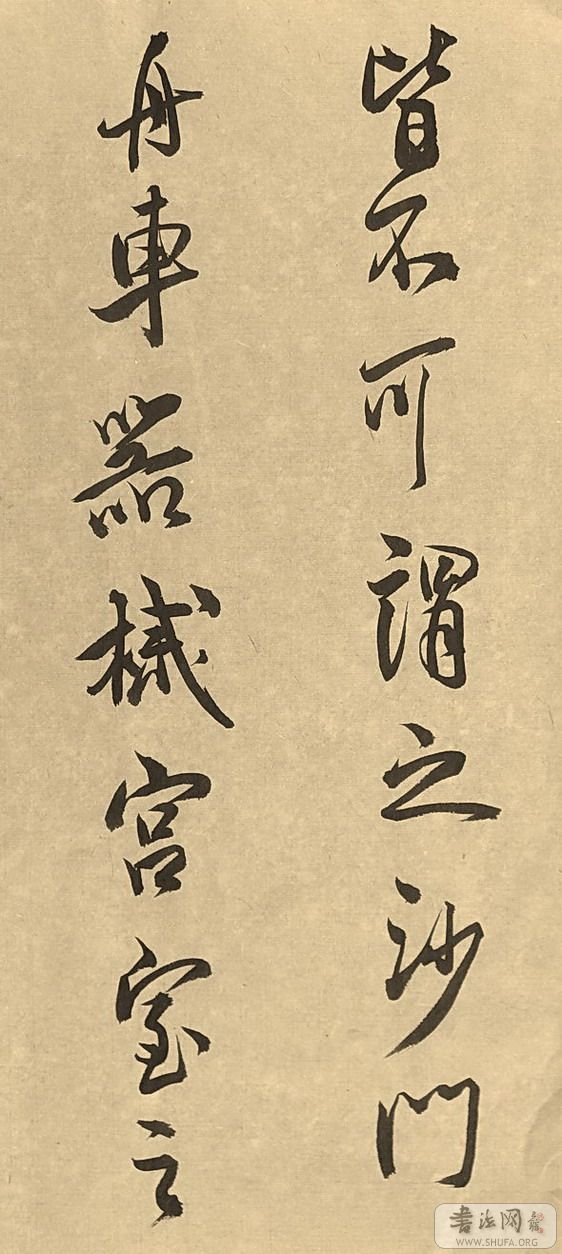 皆不可謂之沙門
舟車器械宮室之
書法网
WWW.SHUFA.ORG